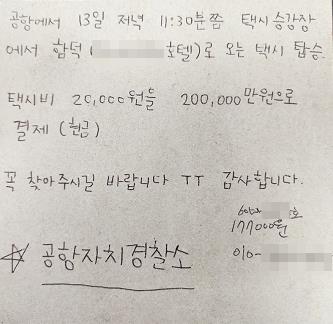 공항에서 13일 저녁 11:30분쯤 택시 승강장
에서 함덕 ( 호텔)로 오는 택시 탑승.
택시비 20,000원을 200,000만원으로
결제 (현금)
꼭 찾아주시길 바랍니다 ㅠㅠ 감사합니다.
호
177000원
010-
☆ 공항자치경찰소